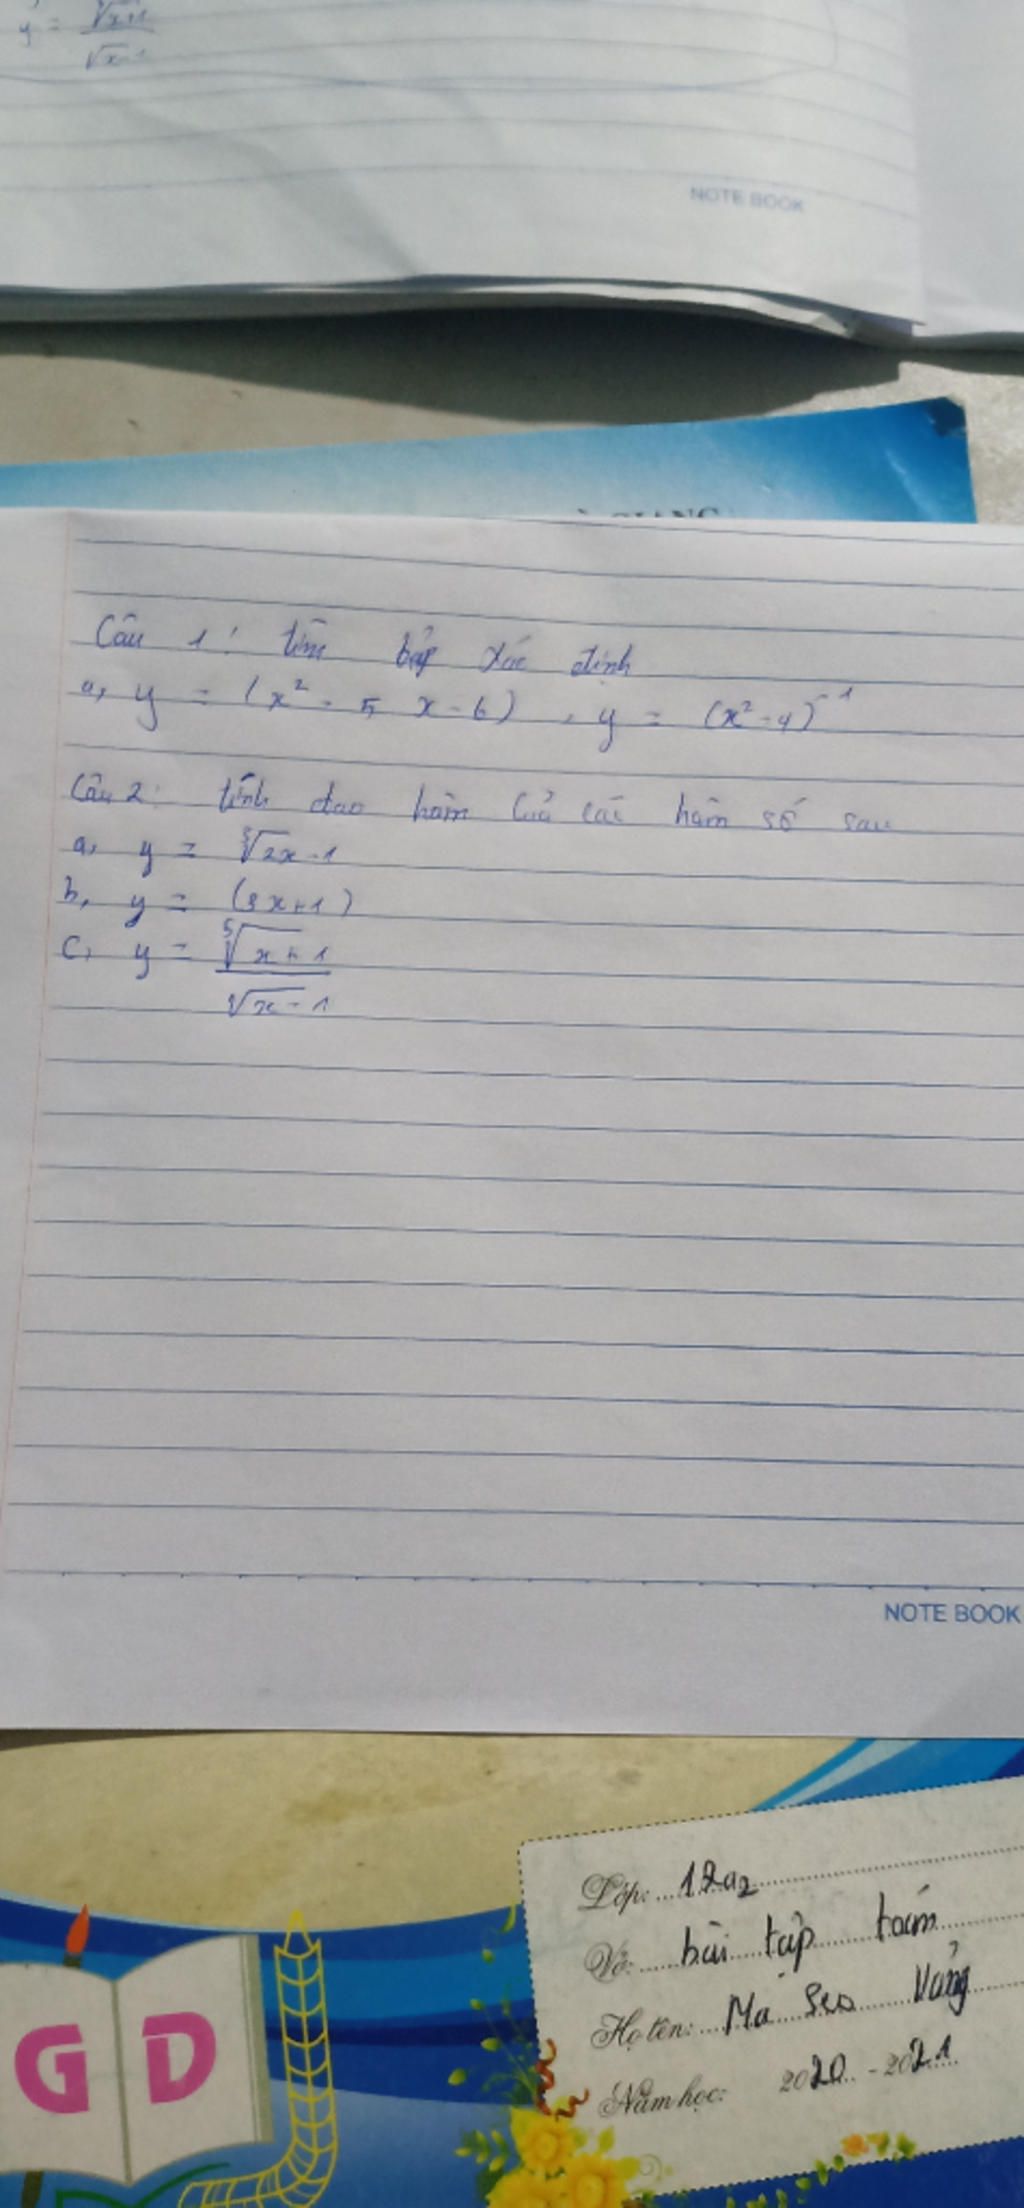 y = ∛x+1 / √x-1
NOTE BOOK
GIANG
Câu 1: tìm tập xác định
a, y = (x² - 5 x - 6) , y = (x² - 4)⁻¹
Câu 2: tính đao hàm của các hàm số sau
a, y = ∛2x - 1
b, y = (3x+1)
c, y = ⁵√x+1
∛x - 1
NOTE BOOK
Lớp: 12a2
Vở: bài tập toán
Họ tên: Ma Seo Vảng
Năm học: 2020 - 2021
GD